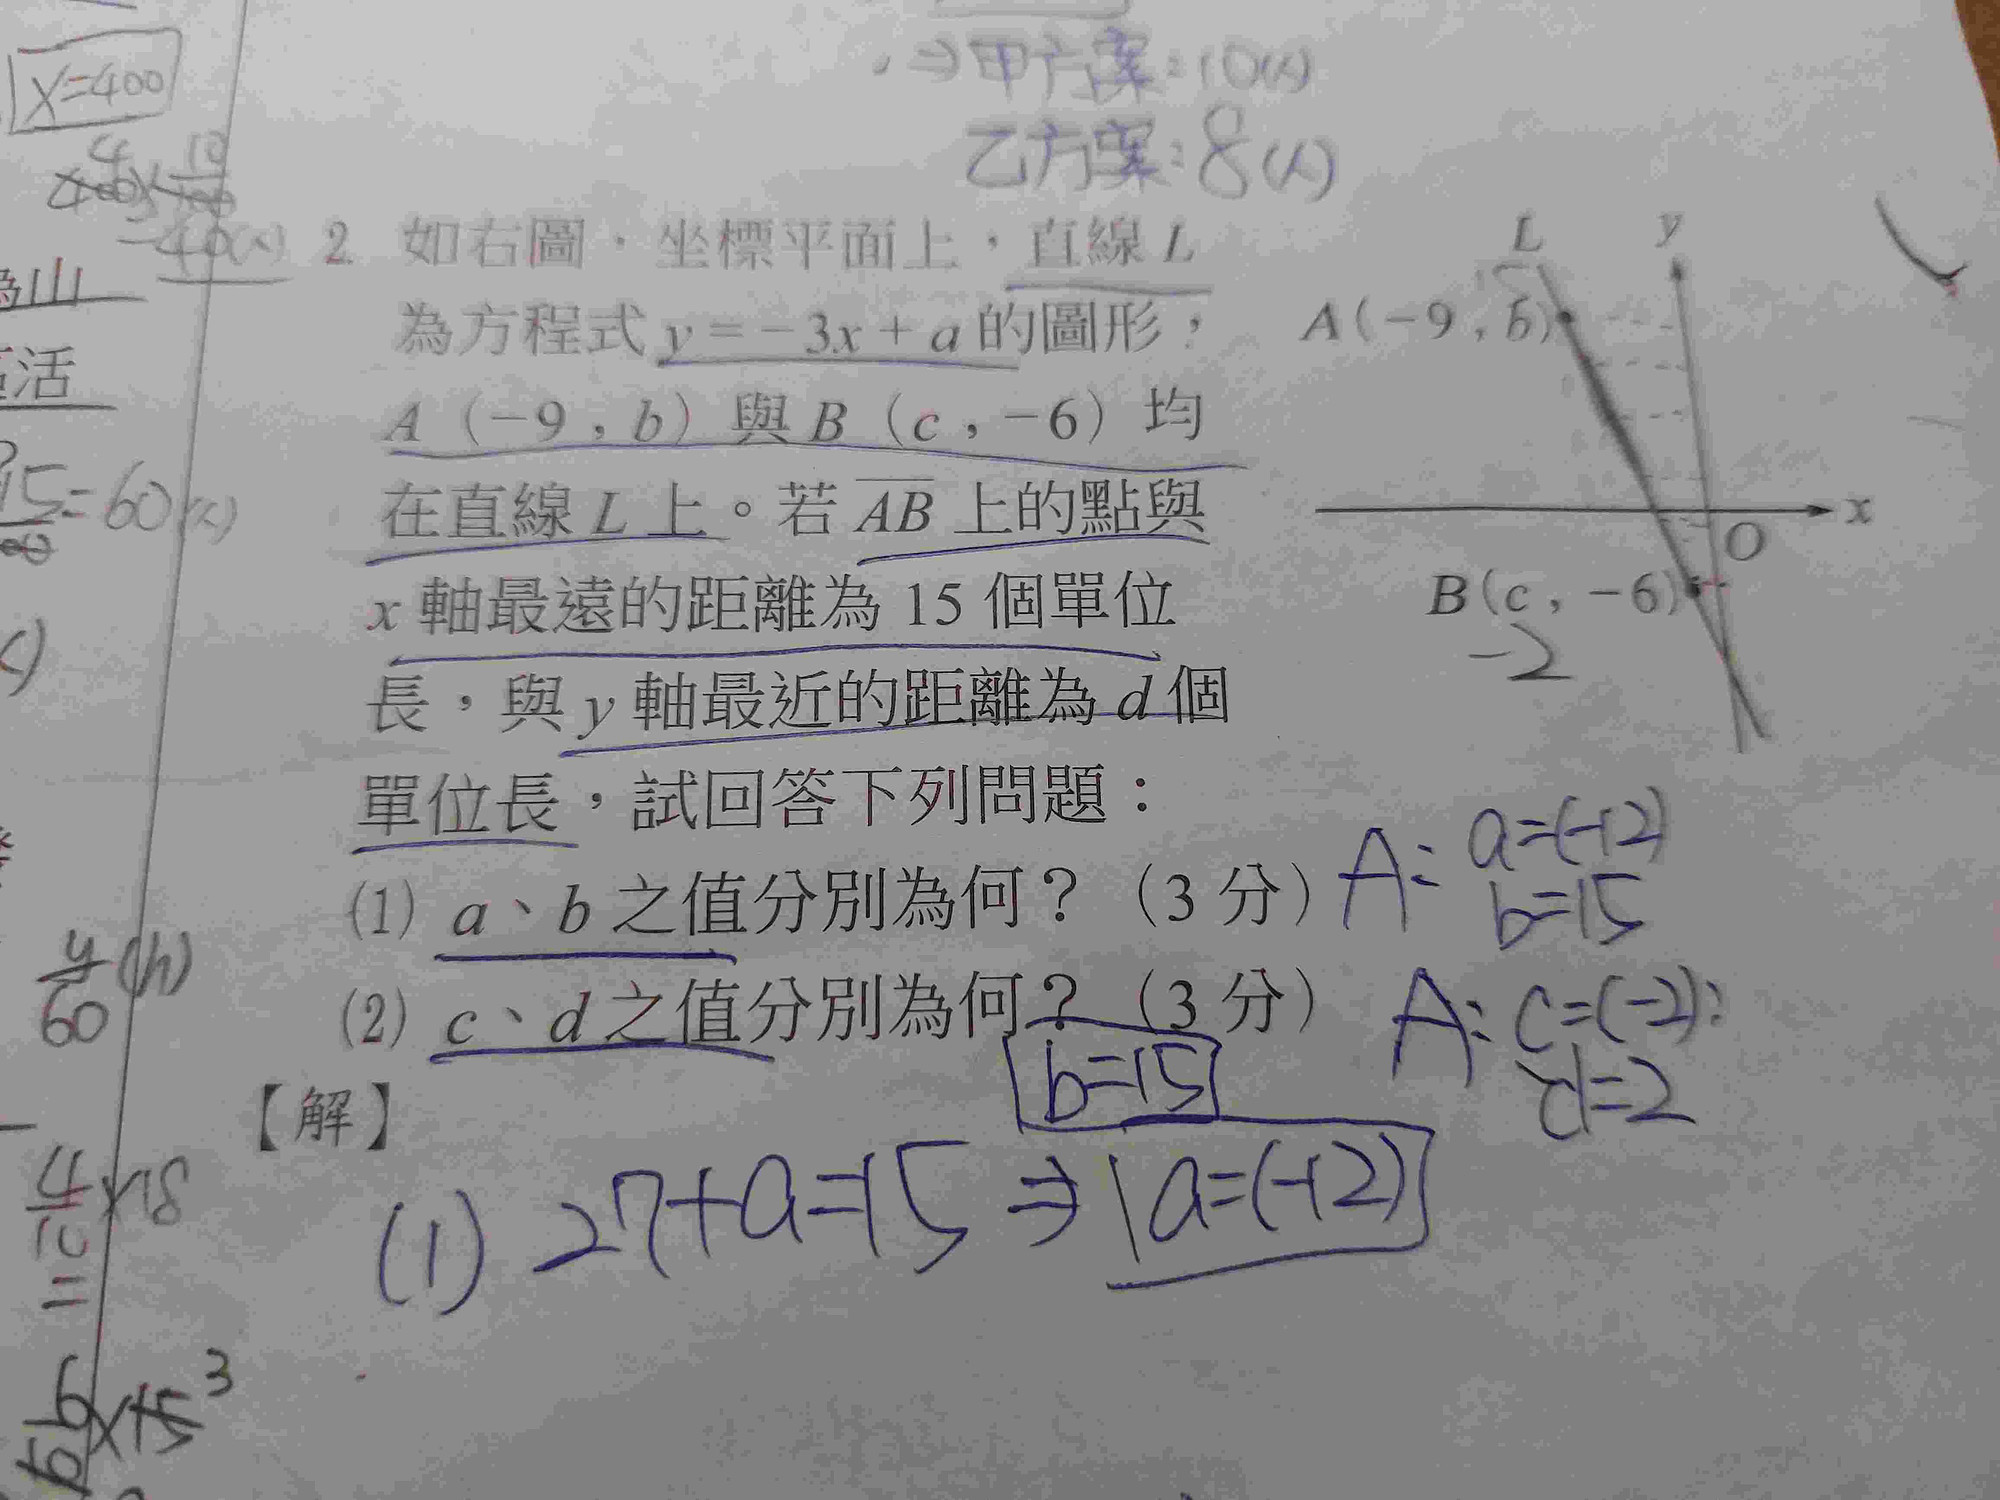 ⇒甲方案:10(人)
乙方案:8(人)
X=400
=40(人)
2. 如右圖,坐標平面上,直線 L
為方程式 y=-3x+a 的圖形,
A(-9,b)與 B(c,-6)均
在直線 L 上。若 AB 上的點與
x 軸最遠的距離為 15 個單位
長,與 y 軸最近的距離為 d 個
單位長,試回答下列問題:
(1) a、b 之值分別為何?(3 分)
(2) c、d 之值分別為何?(3 分)
【解】
L
y
15
A(-9,b)
x
O
B(c,-6)
-2
A: a=(-12)
b=15
A: c=(-2);
d=2
b=15
(1) 27+a=15 ⇒ a=(-12)
山
活
15=60(人)
y/60(h)
4/10×18
=
×15 3